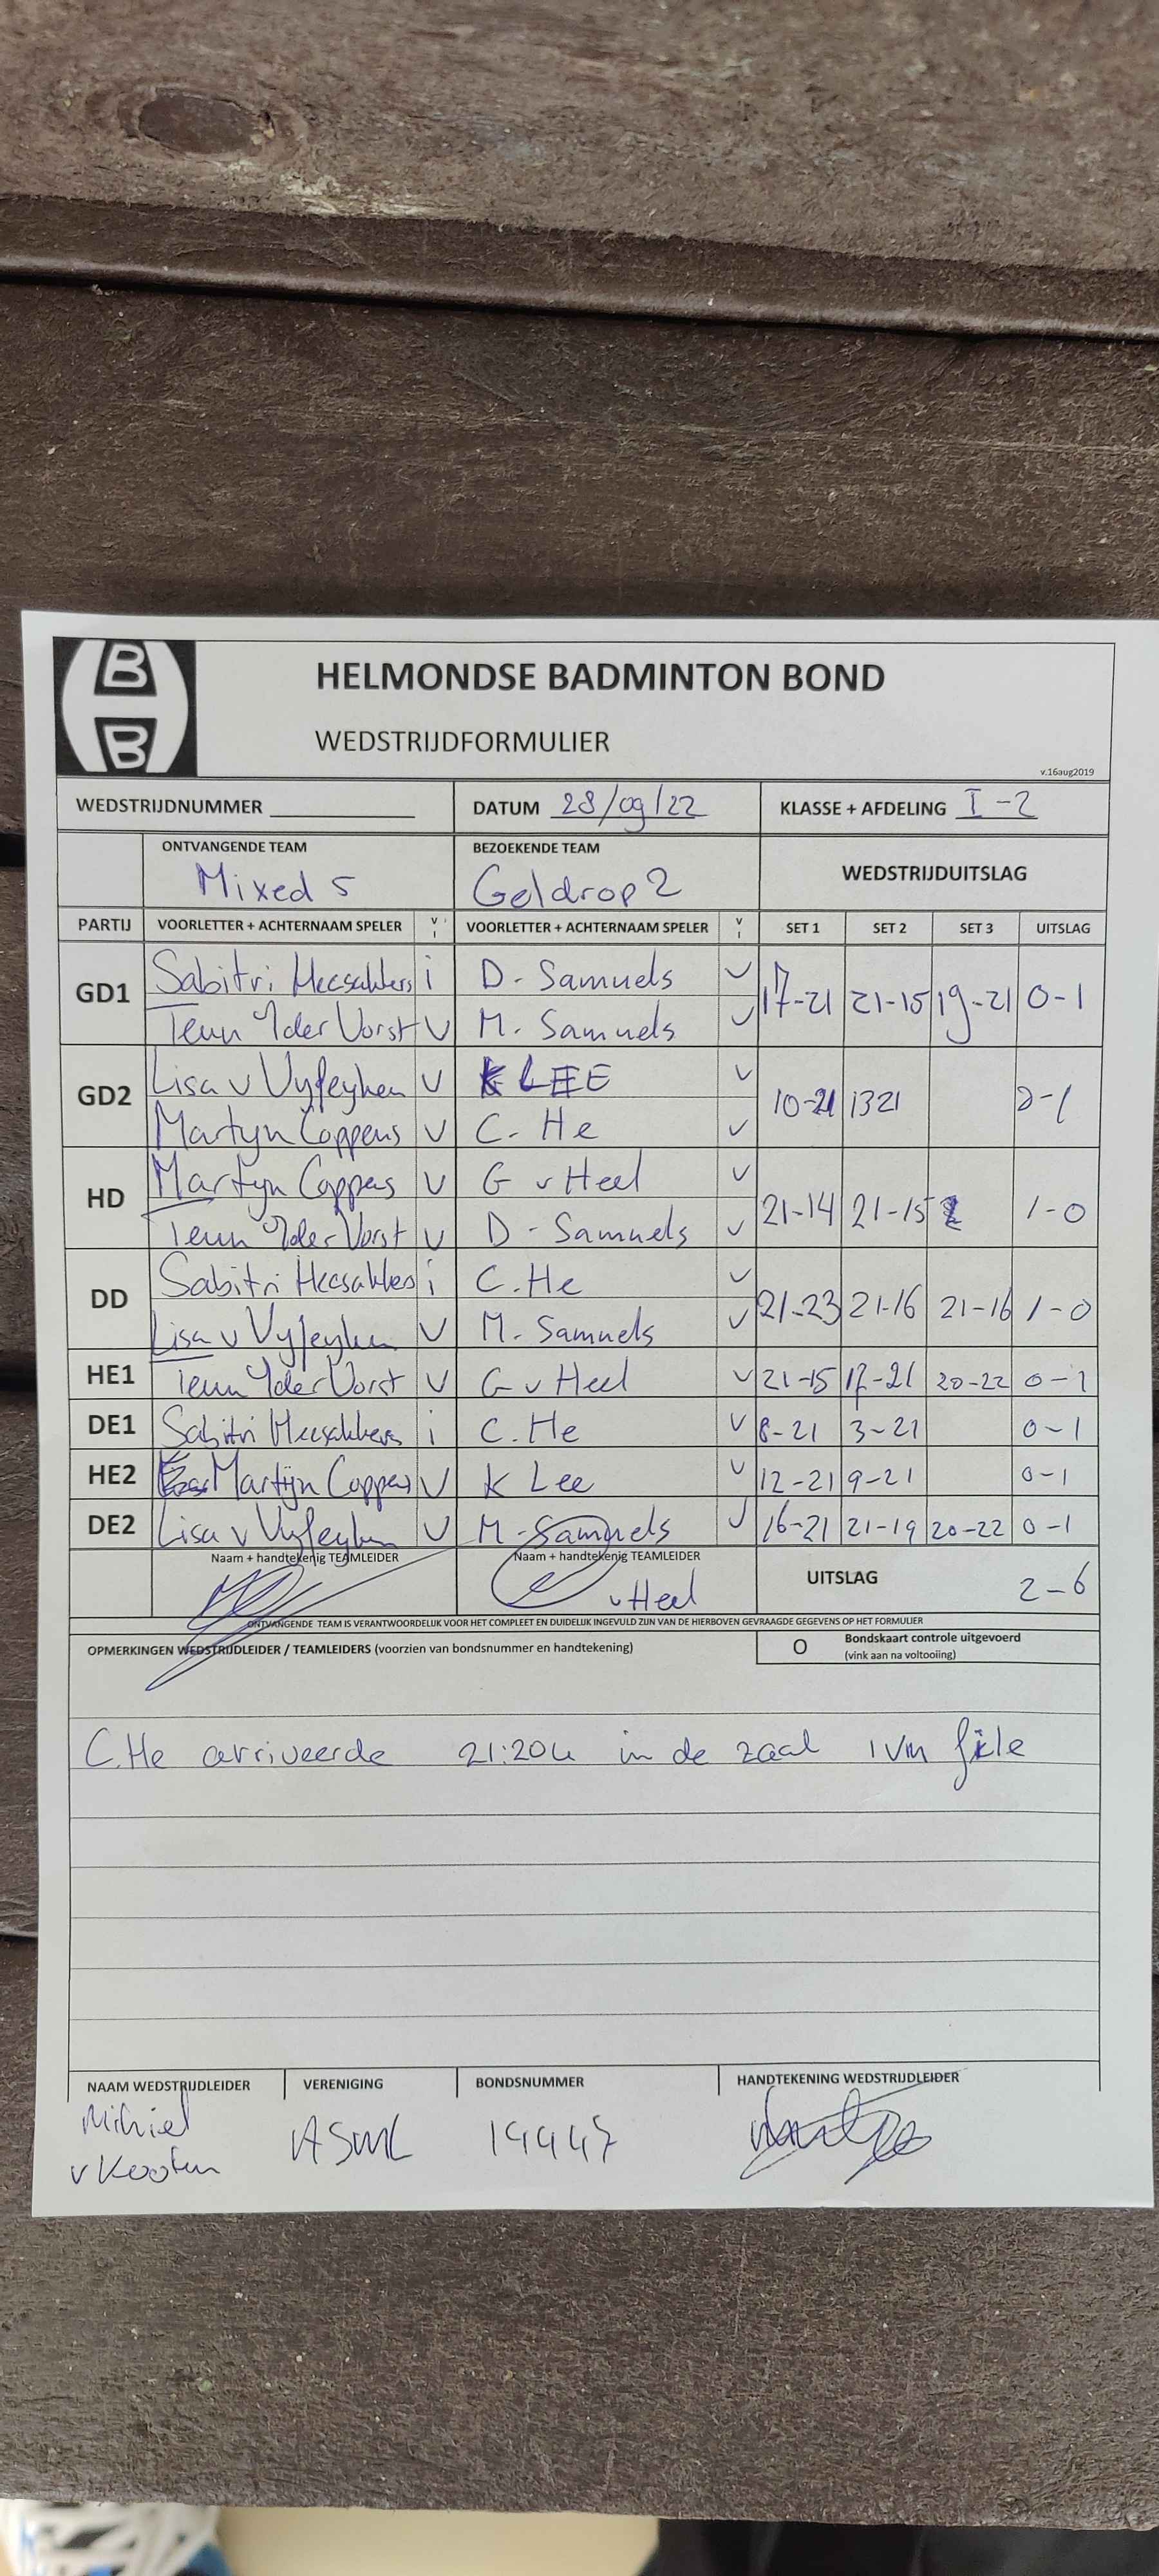 B
B
HELMONDSE BADMINTON BOND
WEDSTRIJDFORMULIER
v.16aug2019
WEDSTRIJDNUMMER DATUM 28/09/22 KLASSE + AFDELING I-2
ONTVANGENDE TEAM BEZOEKENDE TEAM WEDSTRIJDUITSLAG
Mixed 5 Geldrop 2
PARTIJ VOORLETTER + ACHTERNAAM SPELER V I VOORLETTER + ACHTERNAAM SPELER V I SET 1 SET 2 SET 3 UITSLAG
GD1 Sabitri Meesakkers i D. Samuels V 17-21 21-15 19-21 0-1
Teun vder Vorst V M. Samuels V
GD2 Lisa v Vyfeyken V K LEE V 10-21 1321 0-1
Martyn Coppens V C. He V
HD Martyn Coppens V G v Heel V 21-14 21-15 1-0
Teun vder Vorst V D - Samuels V
DD Sabitri Meesakkers i C. He V 21-23 21-16 21-16 1-0
Lisa v Vyfeyken V M. Samuels V
HE1 Teun vder Vorst V G v Heel V 21-15 17-21 20-22 0-1
DE1 Sabitri Meesakkers i C. He V 8-21 3-21 0-1
HE2 Martijn Coppens V K Lee V 12-21 9-21 0-1
DE2 Lisa v Vyfeyken V M. Samuels V 16-21 21-19 20-22 0-1
Naam + handtekenig TEAMLEIDER Naam + handtekenig TEAMLEIDER UITSLAG 2-6
v Heel
ONTVANGENDE TEAM IS VERANTWOORDELIJK VOOR HET COMPLEET EN DUIDELIJK INGEVULD ZIJN VAN DE HIERBOVEN GEVRAAGDE GEGEVENS OP HET FORMULIER
OPMERKINGEN WEDSTRIJDLEIDER / TEAMLEIDERS (voorzien van bondsnummer en handtekening) O Bondskaart controle uitgevoerd
(vink aan na voltooiing)
C.He arriveerde 21:20u in de zaal ivm file
NAAM WEDSTRIJDLEIDER VERENIGING BONDSNUMMER HANDTEKENING WEDSTRIJDLEIDER
Michiel ASML 19447
v Kooten